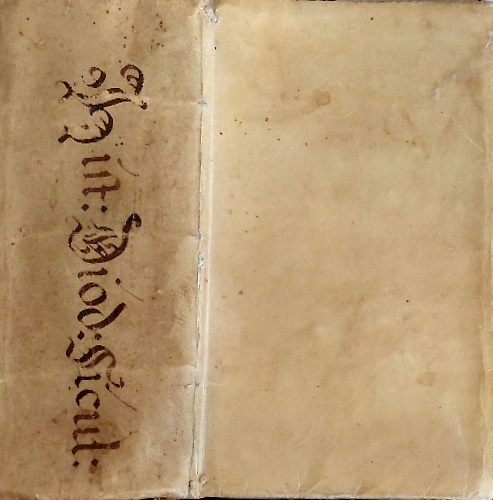 Hist: Diod: Sicul: